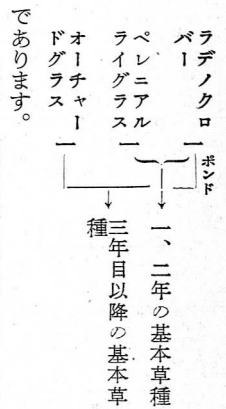 ポンド
ラデノクロバー 一
ペレニアルライグラス 一
オーチャードグラス 一
一、二年の基本草種
三年目以降の基本草種
であります。